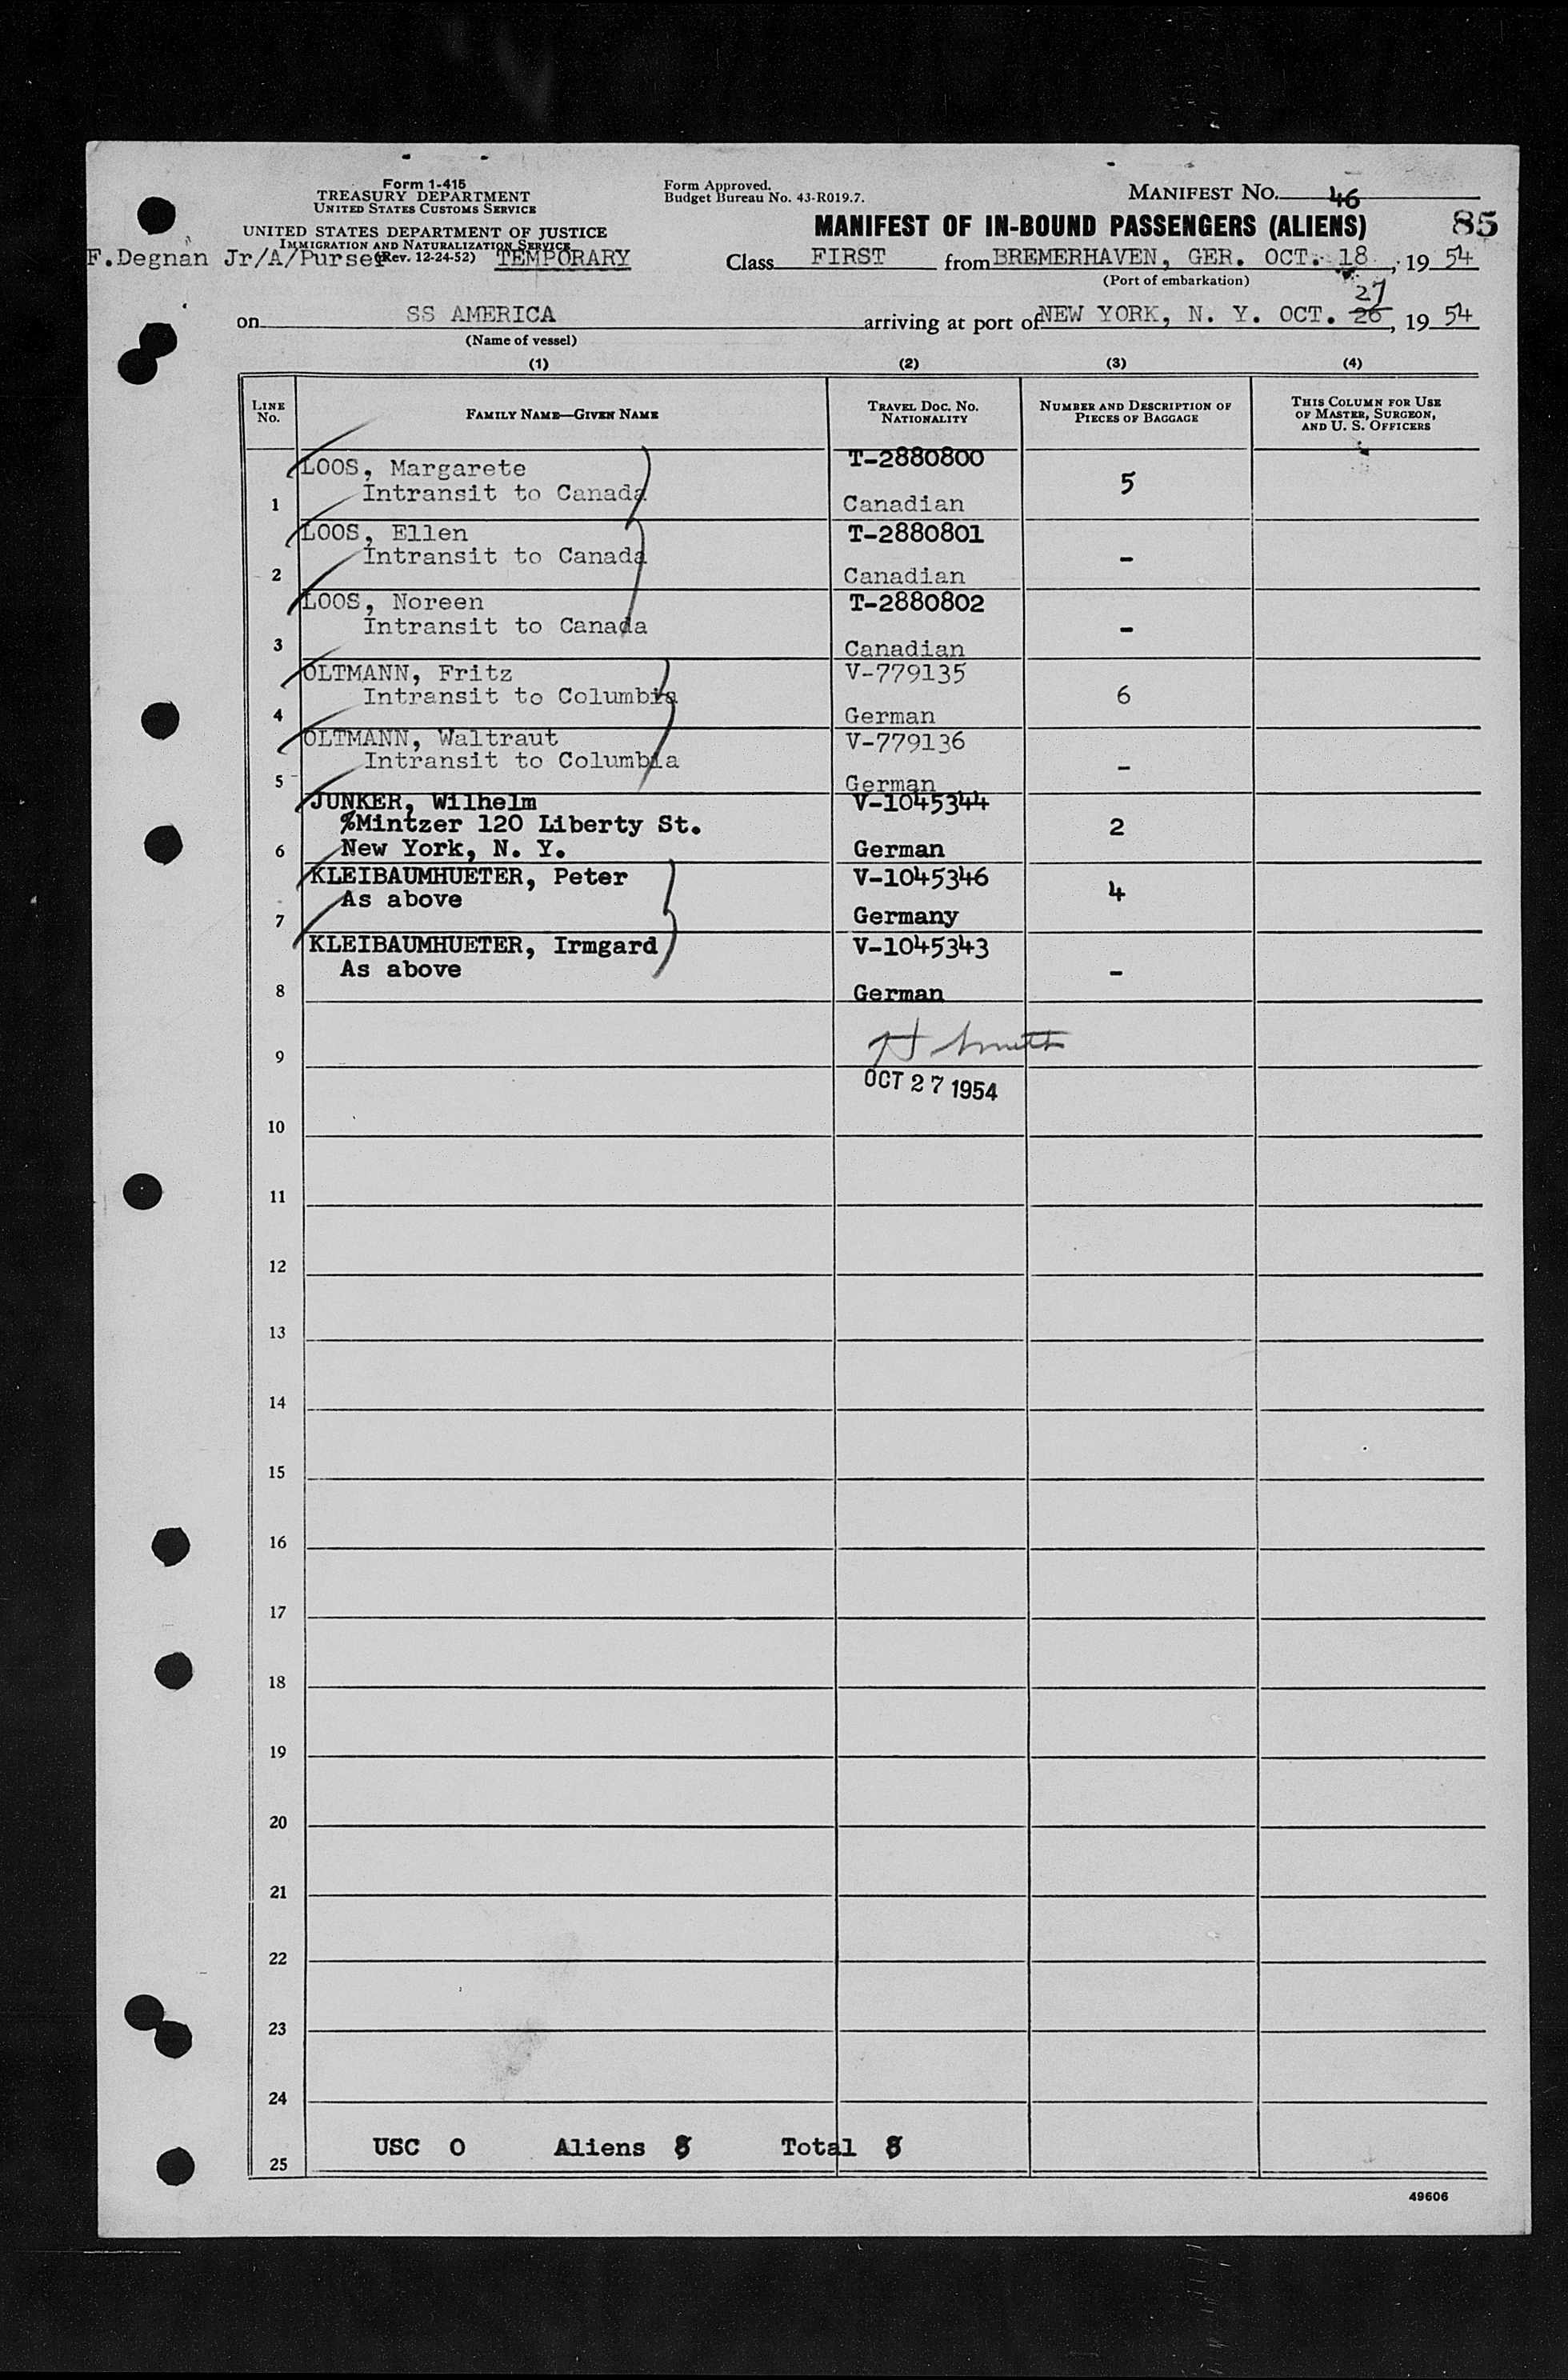 Form 1-415
TREASURY DEPARTMENT
UNITED STATES CUSTOMS SERVICE
UNITED STATES DEPARTMENT OF JUSTICE
IMMIGRATION AND NATURALIZATION SERVICE
(Rev. 12-24-52)
F.Degnan Jr/A/Purser TEMPORARY
Form Approved.
Budget Bureau No. 43-R019.7.
MANIFEST NO. 46
MANIFEST OF IN-BOUND PASSENGERS (ALIENS) 85
Class FIRST from BREMERHAVEN, GER. OCT. 18, 19 54
(Port of embarkation)
27
on SS AMERICA arriving at port of NEW YORK, N. Y. OCT. 26, 19 54
(Name of vessel)
(1) (2) (3) (4)
LINE No.
FAMILY NAME—GIVEN NAME
TRAVEL DOC. NO. NATIONALITY
NUMBER AND DESCRIPTION OF PIECES OF BAGGAGE
THIS COLUMN FOR USE OF MASTER, SURGEON, AND U. S. OFFICERS
LOOS, Margarete T-2880800
Intransit to Canada 5
1 Canadian
LOOS, Ellen T-2880801
Intransit to Canada -
2 Canadian
LOOS, Noreen T-2880802
Intransit to Canada -
3 Canadian
OLTMANN, Fritz V-779135
Intransit to Columbia 6
4 German
OLTMANN, Waltraut V-779136
Intransit to Columbia -
5 German
JUNKER, Wilhelm V-1045344
%Mintzer 120 Liberty St. 2
6 New York, N. Y. German
KLEIBAUMHUETER, Peter V-1045346
As above 4
7 Germany
KLEIBAUMHUETER, Irmgard V-1045343
As above -
8 German
H Smith
9
OCT 27 1954
10
11
12
13
14
15
16
17
18
19
20
21
22
23
24
USC 0 Aliens 8 Total 8
25
49606